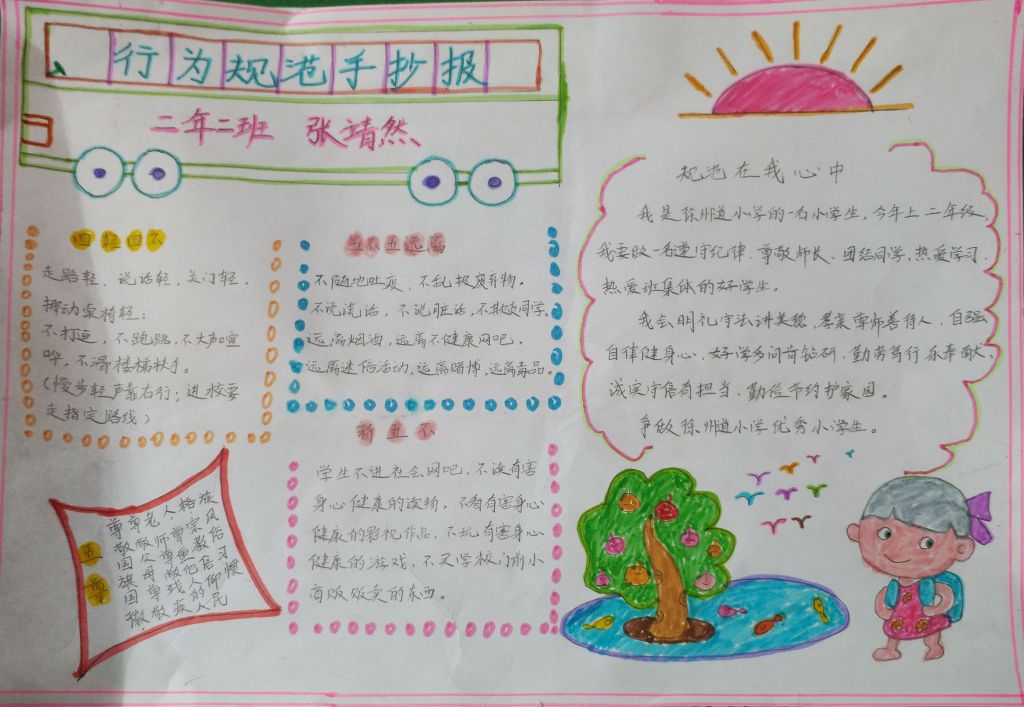 行为规范手抄报
二年二班 张靖然
四轻四不
走路轻、说话轻,关门轻,
挪动桌椅轻;
不打逗,不跑跳,不大声喧
哗,不滑楼梯扶手。
(慢步轻声靠右行;进校要
走指定路线)
五不五远离
不随地吐痰、不乱扔废弃物,
不说谎话,不说脏话,不欺负同学。
远离烟酒,远离不健康网吧,
远离迷信活动,远离赌博,远离毒品。
新五不
学生不进社会网吧,不读有害
身心健康的读物,不看有害身心
健康的影视作品,不玩有害身心
健康的游戏,不买学校门前小
商贩贩卖的东西。
五尊
尊敬国旗国徽
尊敬父母尊敬
老师尊敬残疾
规范在我心中
我是徐州道小学的一名小学生,今年上二年级,
我要做一名遵守纪律、尊敬师长、团结同学、热爱学习、
热爱班集体的好学生。
我会明礼守法讲美德,孝亲尊师善待人,自强
自律健身心,好学多问肯钻研,勤劳笃行乐奉献、
诚实守信有担当,勤俭节约护家园。
争做徐州道小学优秀小学生。